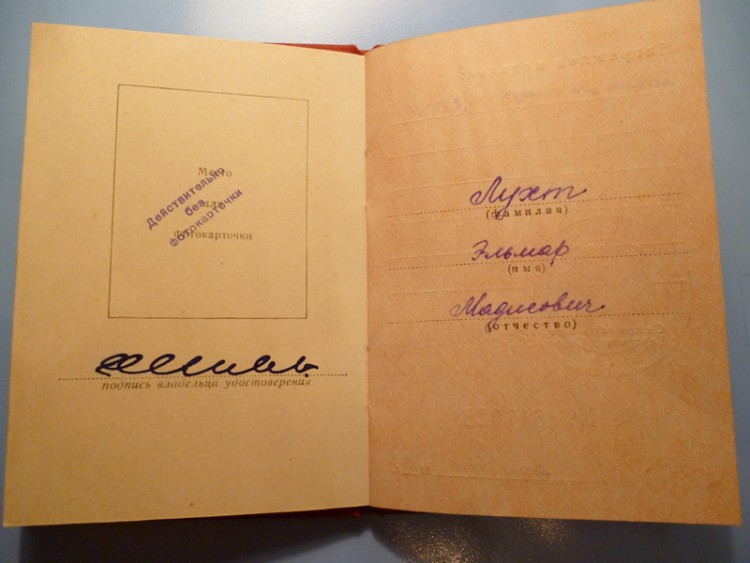 Место
для
фотокарточки
Действительно
без
фотокарточки
подпись владельца удостоверения
Лухт
(фамилия)
Эльмар
(имя)
Мадисович
(отчество)